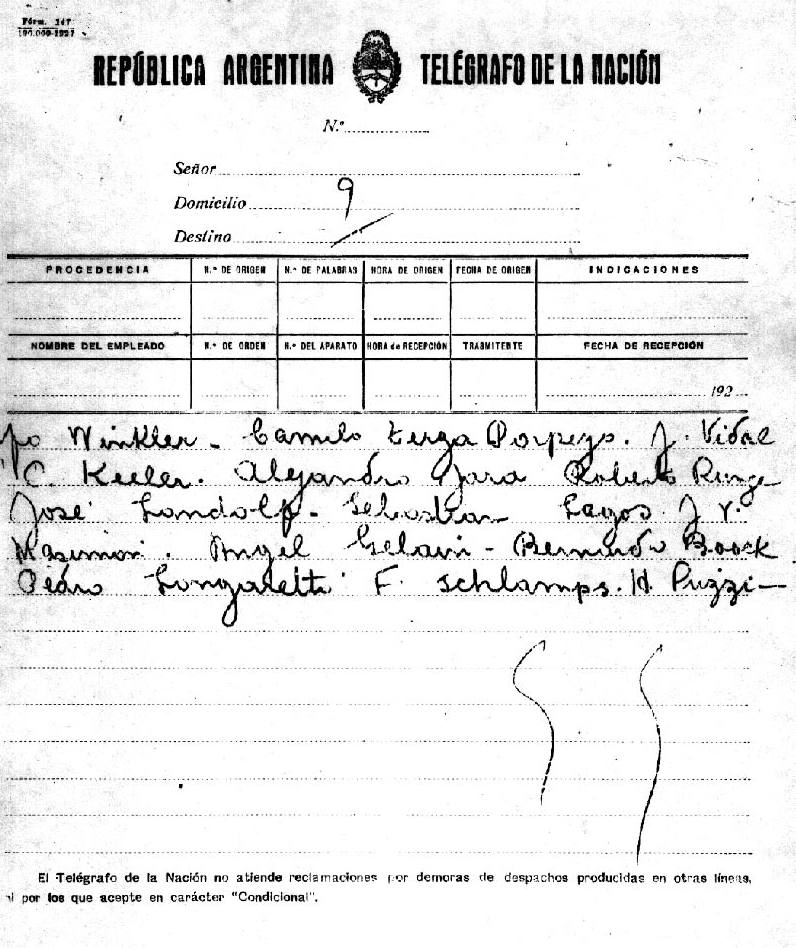 Fórm. 147
100.000-1927
REPÚBLICA ARGENTINA TELÉGRAFO DE LA NACIÓN
N.º
Señor
Domicilio 9
Destino
PROCEDENCIA N.º DE ORIGEN N.º DE PALABRAS HORA DE ORIGEN FECHA DE ORIGEN INDICACIONES
NOMBRE DEL EMPLEADO N.º DE ORDEN N.º DEL APARATO HORA de RECEPCIÓN TRASMITENTE FECHA DE RECEPCIÓN
192
Winkler - Camilo J. Vidal
C. Keeler. Alejandro Jara Roberto Runge
José Landolf - Sebastian Lagos. J. V.
Angel Gelavi - Bernardo Boock
Pedro Longaretti F. Schlamps. H. Puzzi -
El Telégrafo de la Nación no atiende reclamaciones por demoras de despachos producidas en otras líneas,
ni por los que acepte en carácter "Condicional".